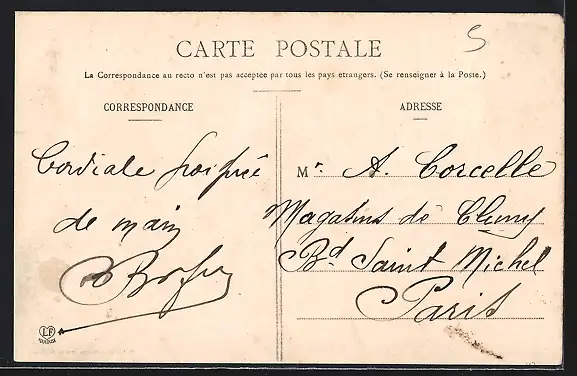 CARTE POSTALE
5
La Correspondance au recto n'est pas acceptée par tous les pays etrangers. (Se renseigner à la Poste.)
CORRESPONDANCE
Cordiale
de main
ADRESSE
Mr. A. Corcelle
Magasins de Cluny
Bd Saint Michel
Paris
LF